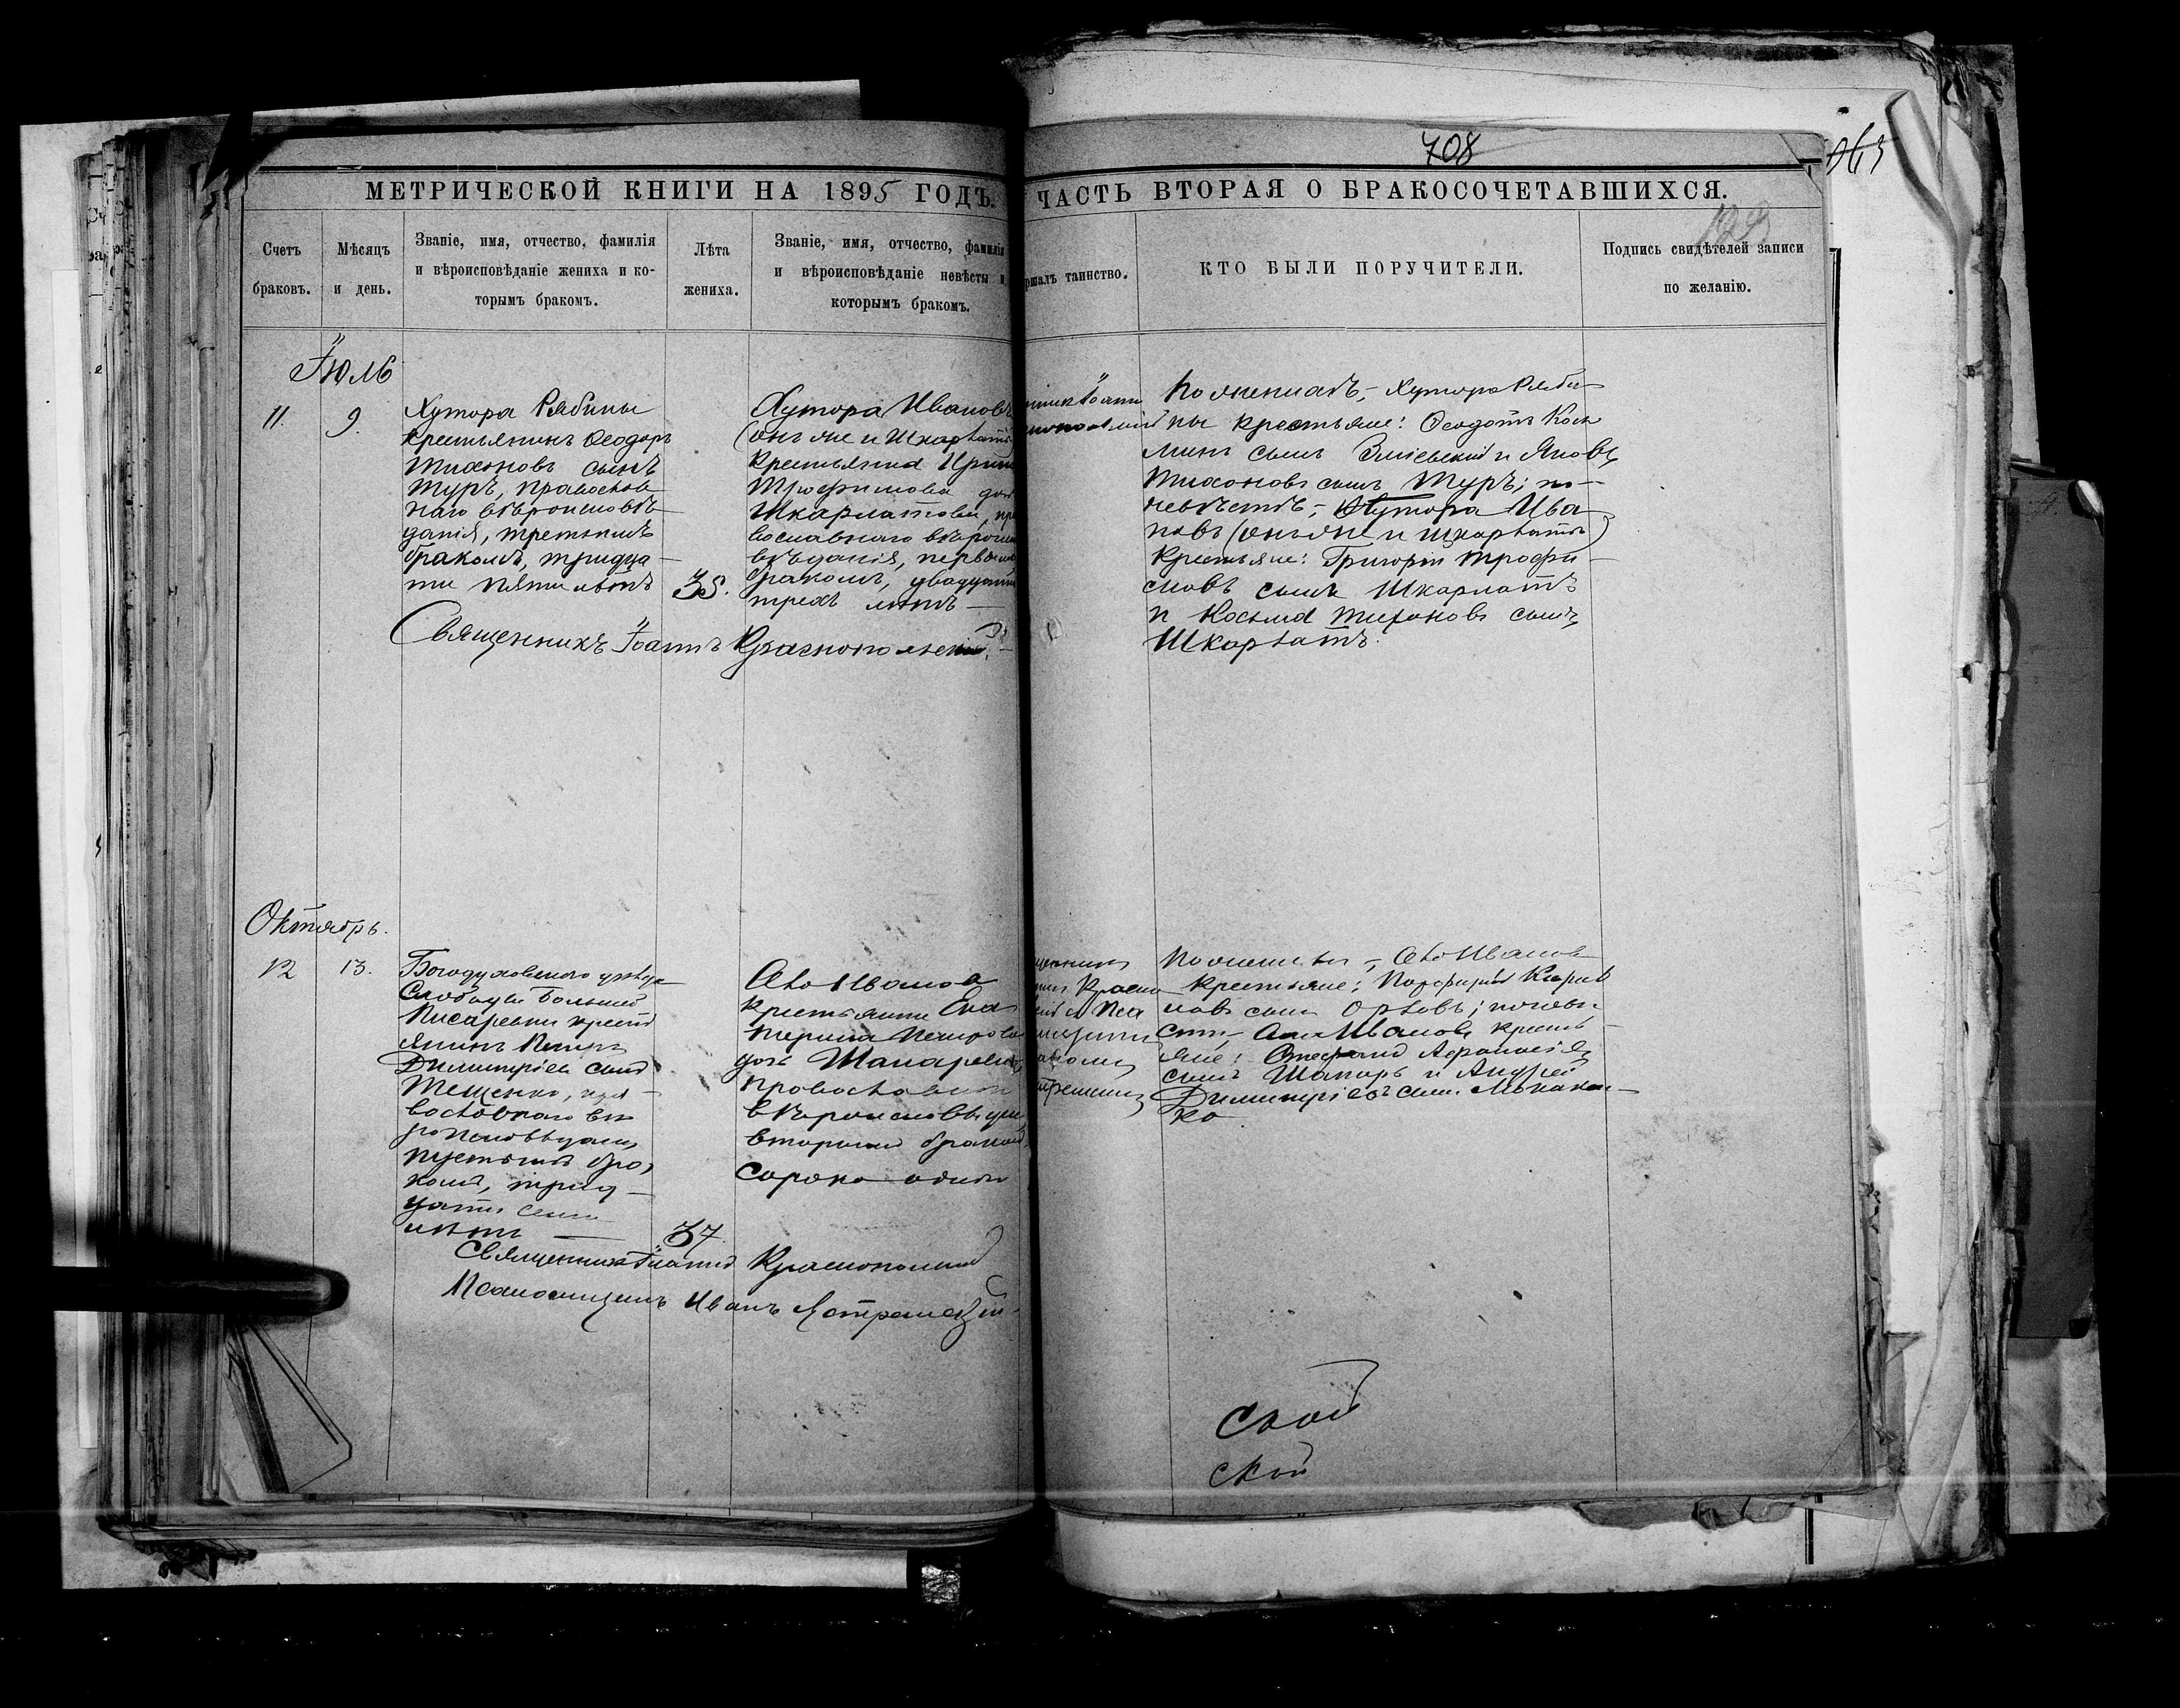 708
МЕТРИЧЕСКОЙ КНИГИ НА 1895 ГОДЪ.
ЧАСТЬ ВТОРАЯ О БРАКОСОЧЕТАВШИХСЯ.
Счетъ
браковъ.
Мѣсяцъ
и день.
Званіе, имя, отчество, фамилія
и вѣроисповѣданіе жениха и ко-
торымъ бракомъ.
Лѣта
жениха.
Званіе, имя, отчество, фамилія
и вѣроисповѣданіе невѣсты и
которымъ бракомъ.
ршалъ таинство.
КТО БЫЛИ ПОРУЧИТЕЛИ.
Подпись свидѣтелей записи
по желанію.
Іюль
11.
9.
Хутора Рябины
крестьянинъ Ѳеодоръ
Тихоновъ сынъ
Туръ, православ
наго вѣроисповѣ
данія, третьимъ
бракомъ, тридца-
ти пяти лѣтъ
35.
Хутора Ивановъ
(онъ же и Шкарлатъ
крестьянка Ирин
Трофимова доч
Шкарлатова, пра
вославнаго вѣроис
вѣданія, первымъ
бракомъ, двадцати
трехъ лѣтъ
Священникъ Іоаннъ Краснопольскій.
По женихѣ, – хутора Ряби
ны крестьяне: Ѳеодотъ Кось
минъ сынъ Зміевскій и Яковъ
Тихоновъ сынъ Туръ; по
невѣстѣ, – хутора Ива
новъ (онъ же и Шкарлатъ)
крестьяне: Григорій Трофи-
мовъ сынъ Шкарлатъ
и Косьма Тихоновъ сынъ
Шкарлатъ.
Октябрь.
12
13.
Богодуховскаго уѣзда
Слободы Большой
Писаревки крестъ
янинъ Петръ
Димитріевъ сынъ
Тещенко, пра-
вославнаго вѣ
роисповѣданія
третьимъ бра
комъ, трид-
цати семи
лѣтъ
37.
Села Иванова
крестьянка Ека
терина Петрова
дочь Шапарева
православнаго
вѣроисповѣдан
вторымъ бракомъ
сорока одного
Священникъ Іоаннъ Краснопольскій
Псаломщикъ Иванъ Ястремскій
По женихѣ, – села Иванова
крестьяне: Порфирій
новъ сынъ Орловъ; по невѣ
стѣ, – села Иванова кресть-
яне: Стефанъ Аѳанасіевъ
сынъ Шапаръ и Андрей
Димитріевъ сынъ
ко
ской
ской